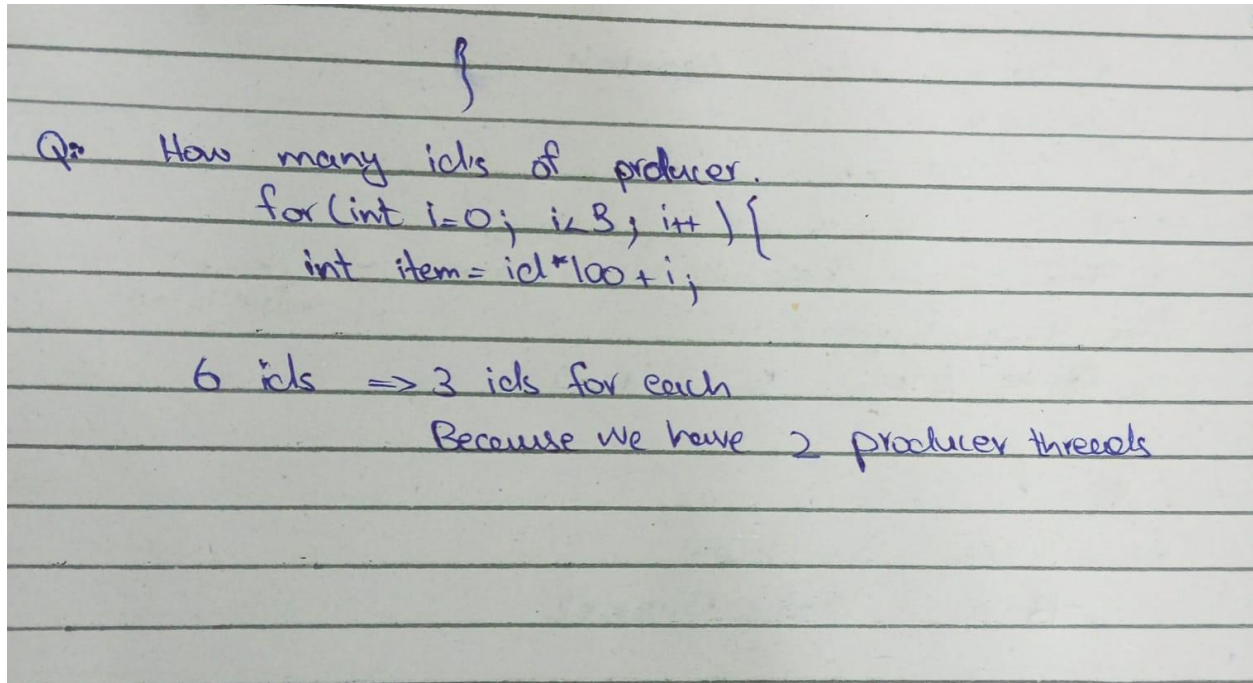 }
Q: How many id's of producer.
for(int i=0; i<3; i++){
int item = id*100+i;
6 ids => 3 ids for each
Because we have 2 producer threads